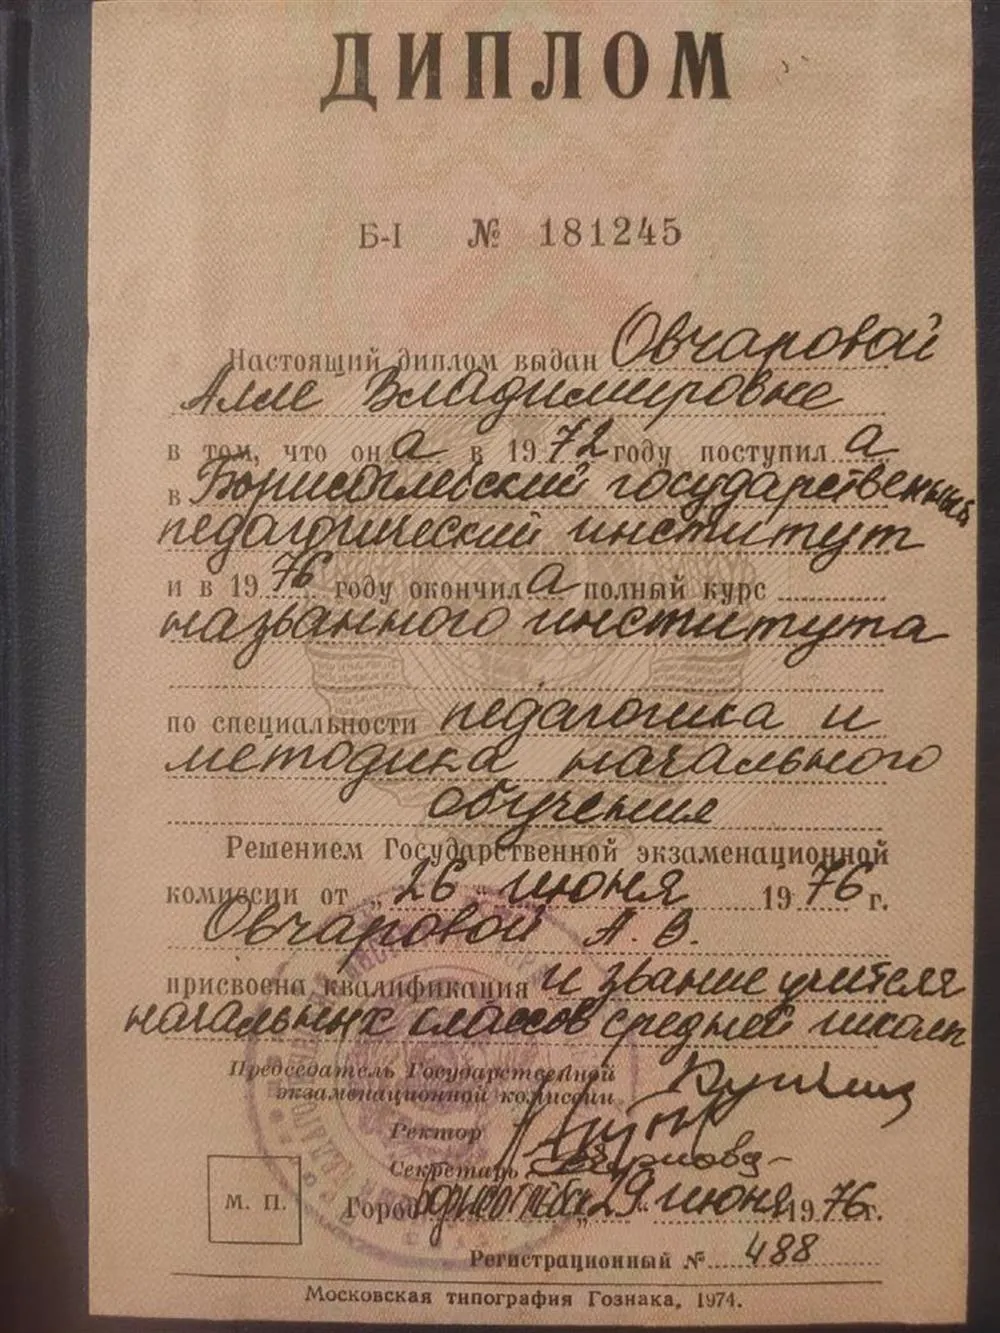 ДИПЛОМ
Б-I № 181245
Настоящий диплом выдан Овчаровой
Алле Владимировне
в том, что он а в 1972 году поступил а
в Борисоглебский государственный
педагогический институт
и в 1976 году окончил а полный курс
названного института
по специальности педагогика и
методика начального
обучения
Решением Государственной экзаменационной
комиссии от „26“ июня 1976 г.
Овчаровой А. В.
присвоена квалификация и звание учителя
начальных классов средней школы
Председатель Государственной
экзаменационной комиссии
Ректор
Секретарь
М. П.
Город Борисоглебск „29“ июня 1976 г.
Регистрационный № 488
Московская типография Гознака, 1974.